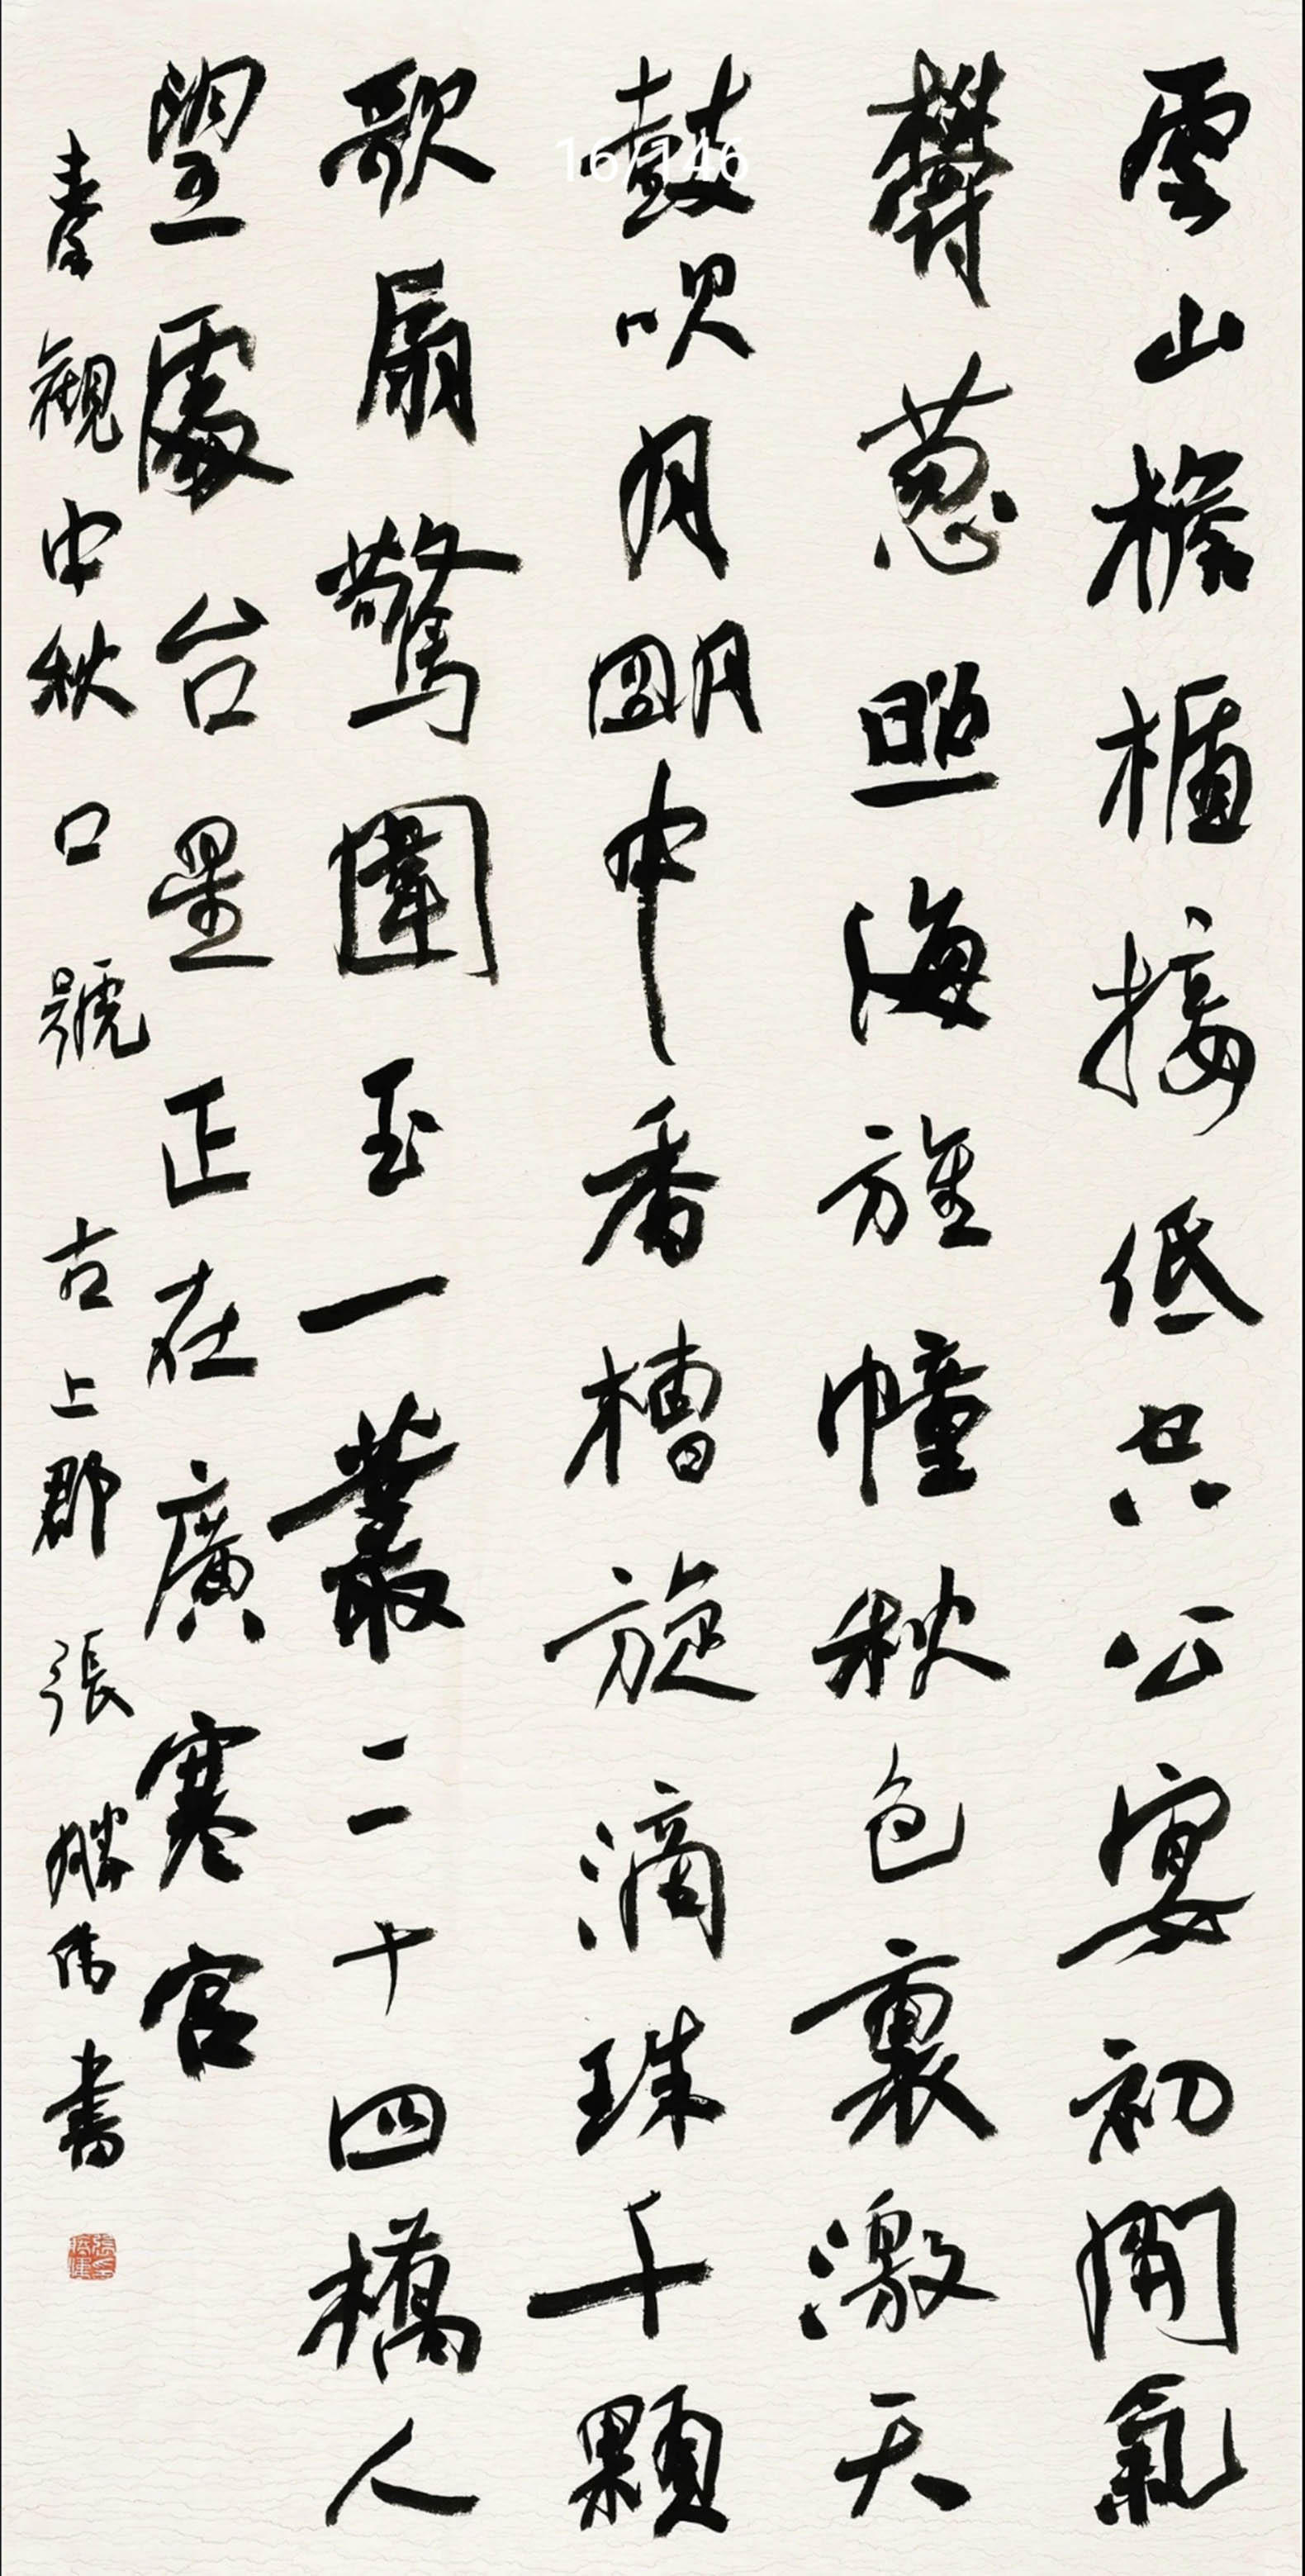 雲山檐楯接低空公宴初開氣
鬱葱照海旌幢秋色裏激天
鼓吹月明中香槽旋滴珠千顆
歌扇驚圍玉一叢二十四橋人
望處台星正在廣寒宮
秦觀中秋口號 古上郡 張勝偉書
16/146